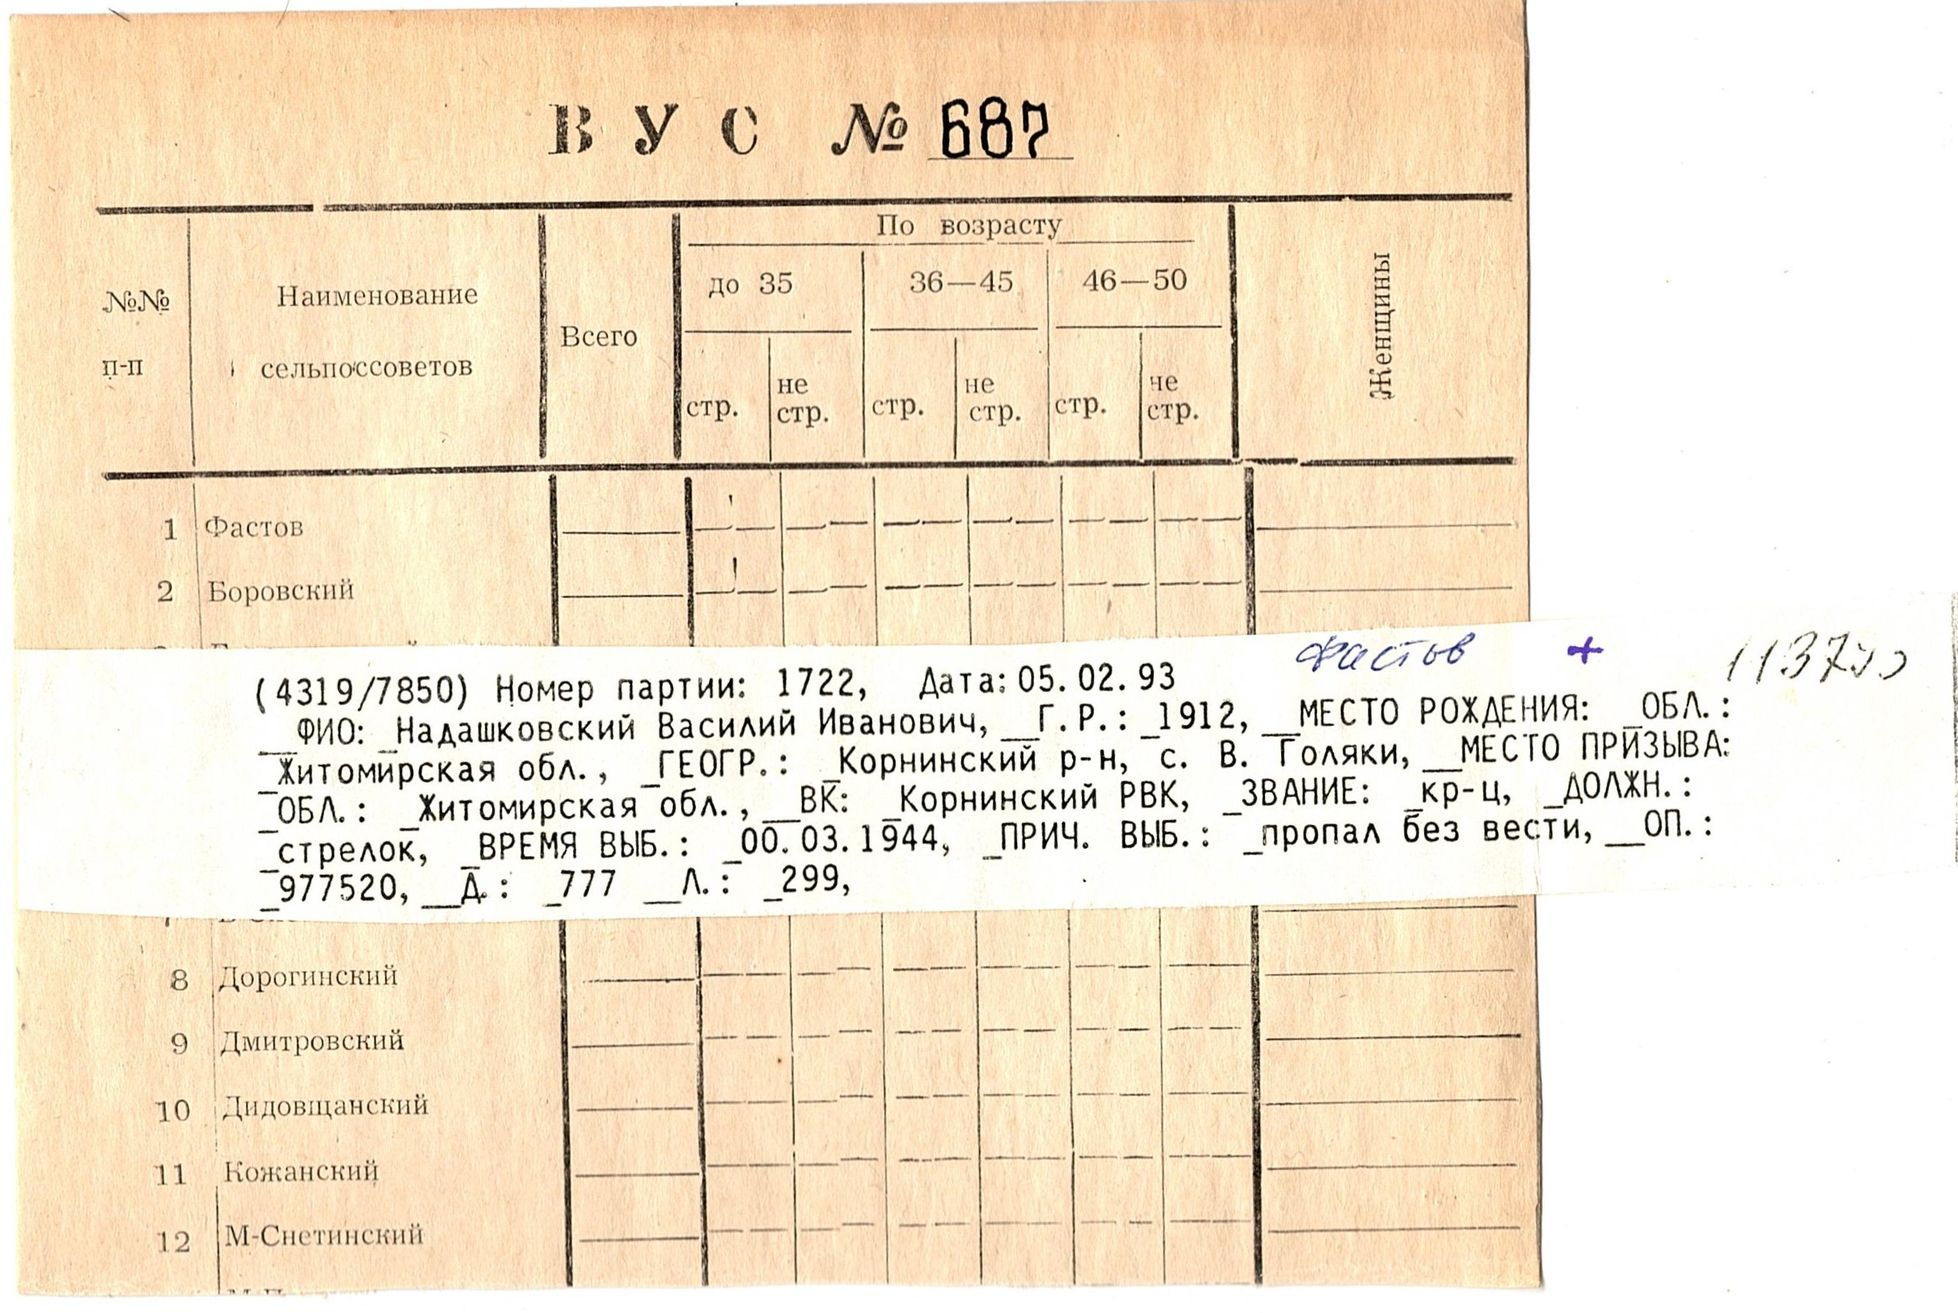 ВУС № 687
По возрасту
№№ п-п
Наименование сельпоссоветов
Всего
до 35
36—45
46—50
Женщины
стр.
не стр.
стр.
не стр.
стр.
не стр.
1 Фастов
2 Боровский
Фастов +
(4319/7850) Номер партии: 1722, Дата: 05.02.93
__ФИО: _Надашковский Василий Иванович, __Г.Р.: _1912, __МЕСТО РОЖДЕНИЯ: _ОБЛ.:
_Житомирская обл., _ГЕОГР.: _Корнинский р-н, с. В. Голяки, __МЕСТО ПРИЗЫВА:
_ОБЛ.: _Житомирская обл., __ВК: _Корнинский РВК, _ЗВАНИЕ: _кр-ц, _ДОЛЖН.:
_стрелок, _ВРЕМЯ ВЫБ.: _00.03.1944, _ПРИЧ. ВЫБ.: _пропал без вести, __ОП.:
_977520, __Д.: _777 __Л.: _299,
8 Дорогинский
9 Дмитровский
10 Дидовщанский
11 Кожанский
12 М-Снетинский